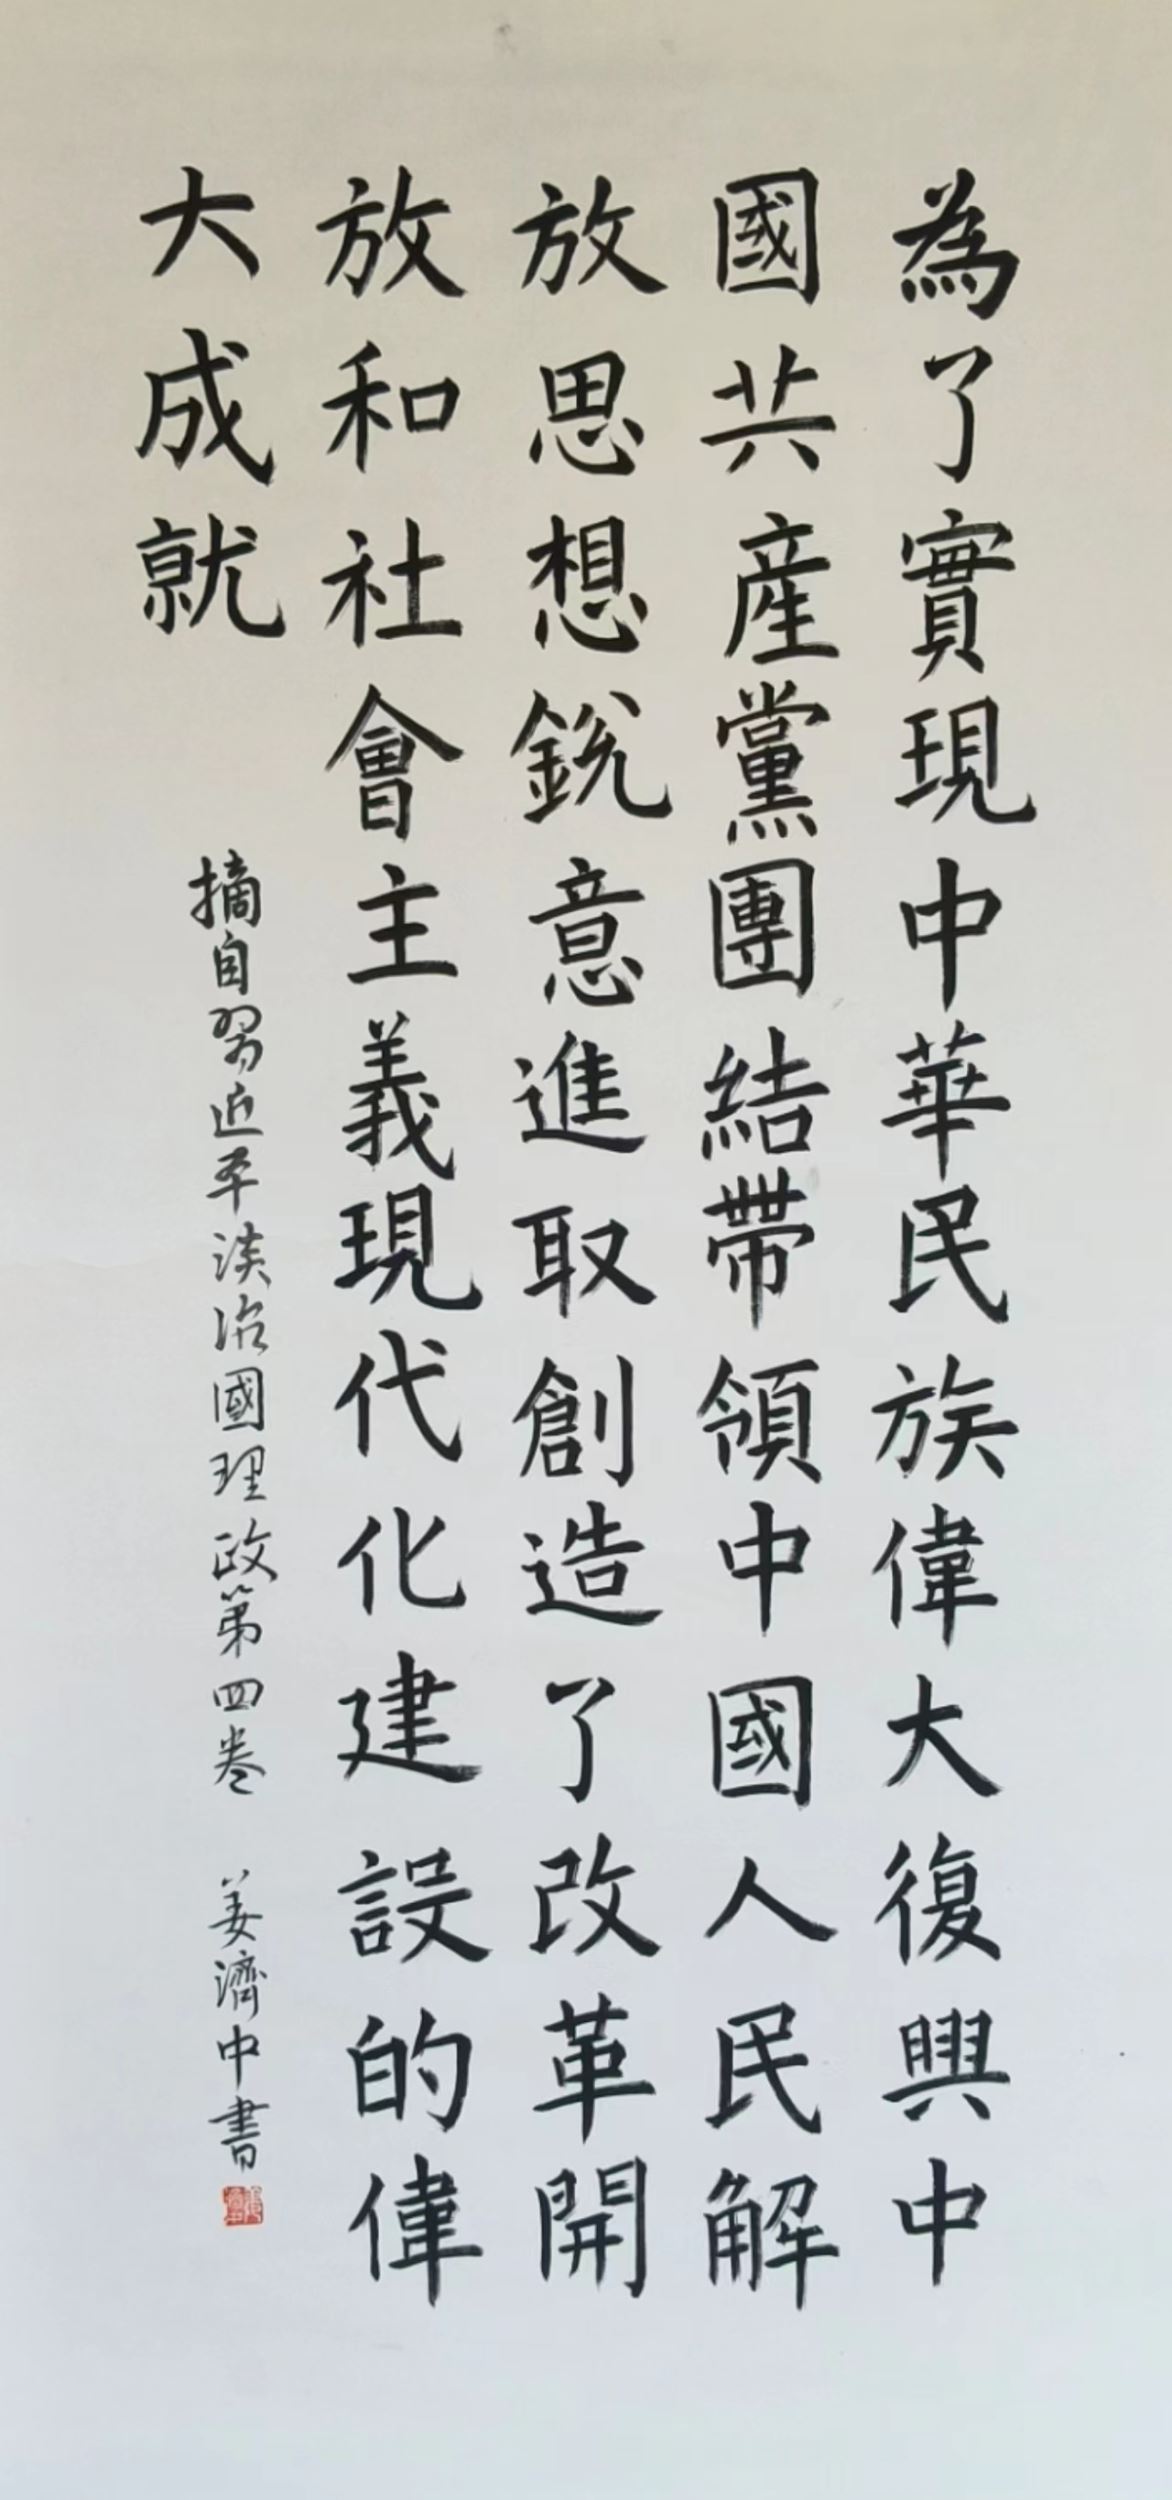 為了實現中華民族偉大復興中
國共産黨團結帶領中國人民解
放思想銳意進取創造了改革開
放和社會主義現代化建設的偉
大成就
摘自習近平談治國理政第四卷
姜濟中書